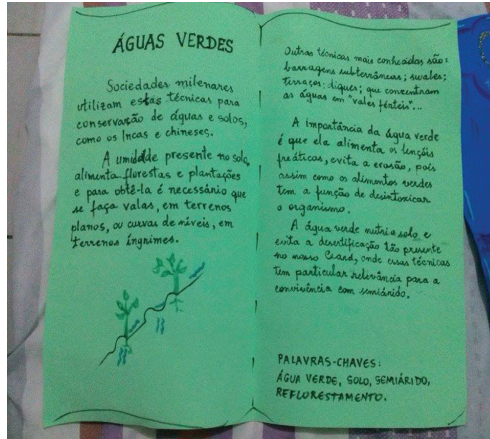 ÁGUAS VERDES
Sociedades milenares
utilizam estas técnicas para
conservação de águas e solos,
como os Incas e chineses.
A umidade presente no solo,
alimenta florestas e plantações
e para obtê-la é necessário que
se faça valas, em terrenos
planos, ou curvas de níveis, em
terrenos íngrimes.
Outras técnicas mais conhecidas são:
barragens subterrâneas; swales;
terraços; diques; que concentram
as águas em "vales férteis"...
A importância da água verde
é que ela alimenta os lençóis
freáticos, evita a erosão, pois
assim como os alimentos verdes
tem a função de desintoxicar
o organismo.
A água verde nutri o solo e
evita a desertificação tão presente
no nosso Ceará, onde essas técnicas
tem particular relevância para a
convivência com semiárido.
PALAVRAS-CHAVES:
ÁGUA VERDE, SOLO, SEMIÁRIDO,
REFLORESTAMENTO.